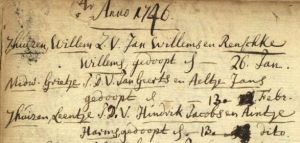 Anno 1746
Thuizen, Willem Z. V. Jan Willems en Renschke
Willems, gedoopt d 26. Jan.
Midw. Grietje D. V. Jan Geerts en Aeltje Jans
gedoopt d 13 Febr.
Thuizen Leentje D. V. Hindrik Jacobs en Rintje
Harms gedoopt d 13 dito